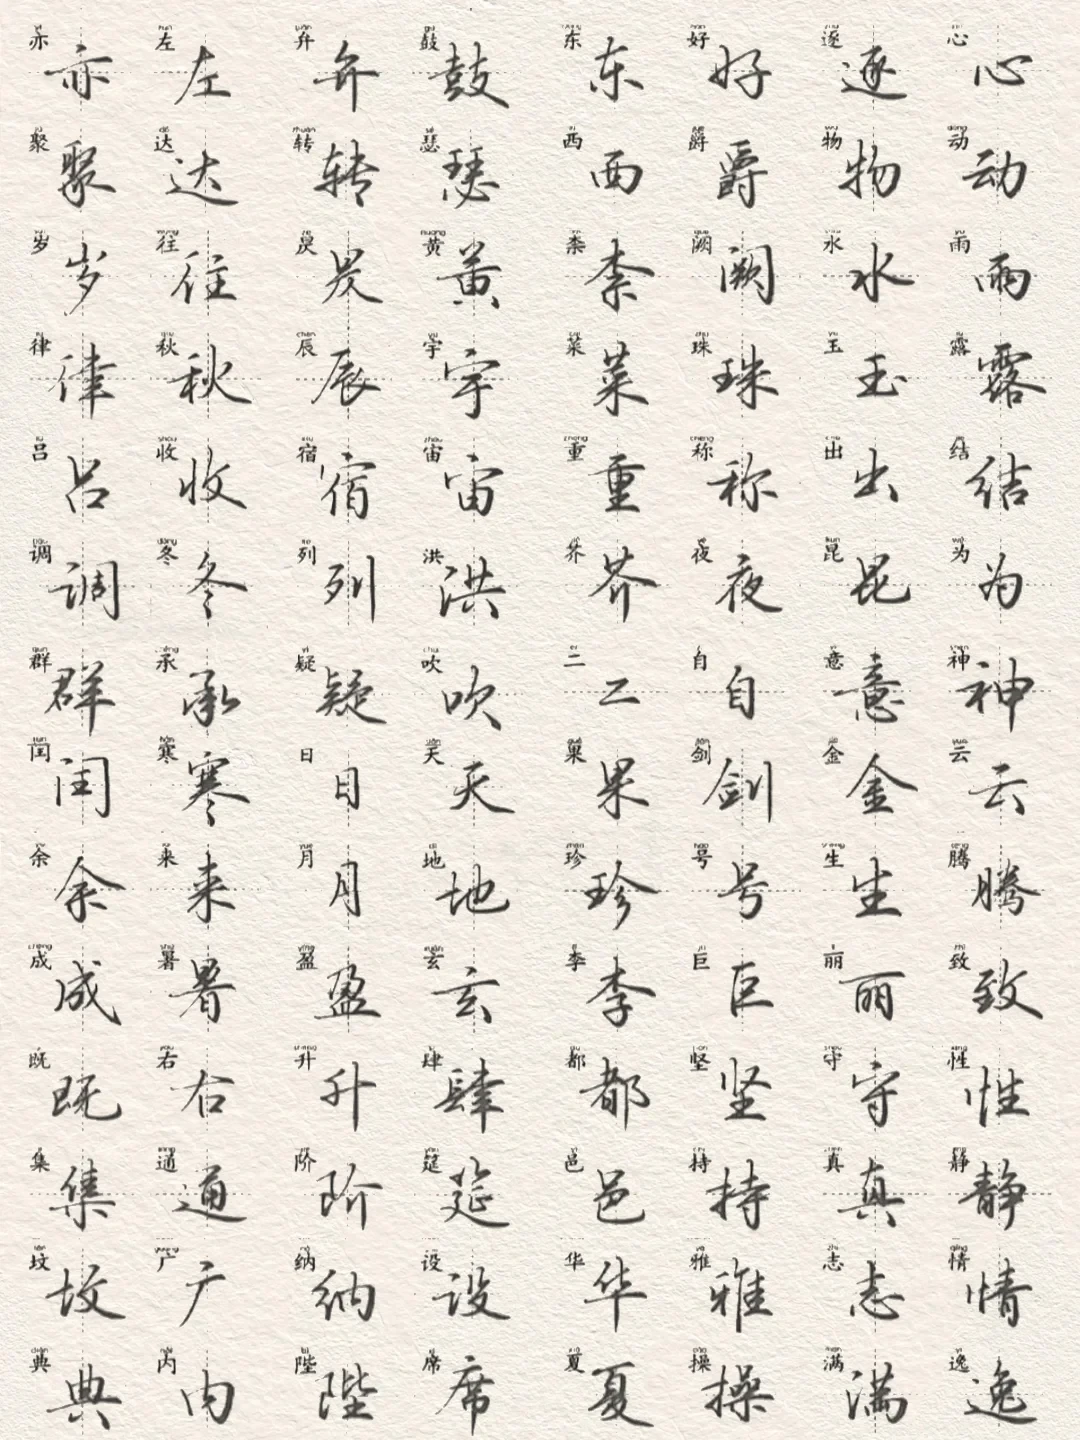 亦 左 弁 鼓 东 好 逐 心
亦 左 弁 鼓 东 好 逐 心
聚 达 转 瑟 西 爵 物 动
聚 达 转 瑟 西 爵 物 动
岁 往 昃 黄 柰 阙 水 雨
岁 往 昃 黄 柰 阙 水 雨
律 秋 辰 宇 菜 珠 玉 露
律 秋 辰 宇 菜 珠 玉 露
吕 收 宿 宙 重 称 出 结
吕 收 宿 宙 重 称 出 结
调 冬 列 洪 芥 夜 昆 为
调 冬 列 洪 芥 夜 昆 为
群 承 疑 吹 二 自 意 神
群 承 疑 吹 二 自 意 神
闰 寒 日 天 果 剑 金 云
闰 寒 日 天 果 剑 金 云
余 来 月 地 珍 号 生 腾
余 来 月 地 珍 号 生 腾
成 暑 盈 玄 李 巨 丽 致
成 暑 盈 玄 李 巨 丽 致
既 右 升 肆 都 坚 守 性
既 右 升 肆 都 坚 守 性
集 通 阶 筵 邑 持 真 静
集 通 阶 筵 邑 持 真 静
坟 广 纳 设 华 雅 志 情
坟 广 纳 设 华 雅 志 情
典 内 陛 席 夏 操 满 逸
典 内 陛 席 夏 操 满 逸